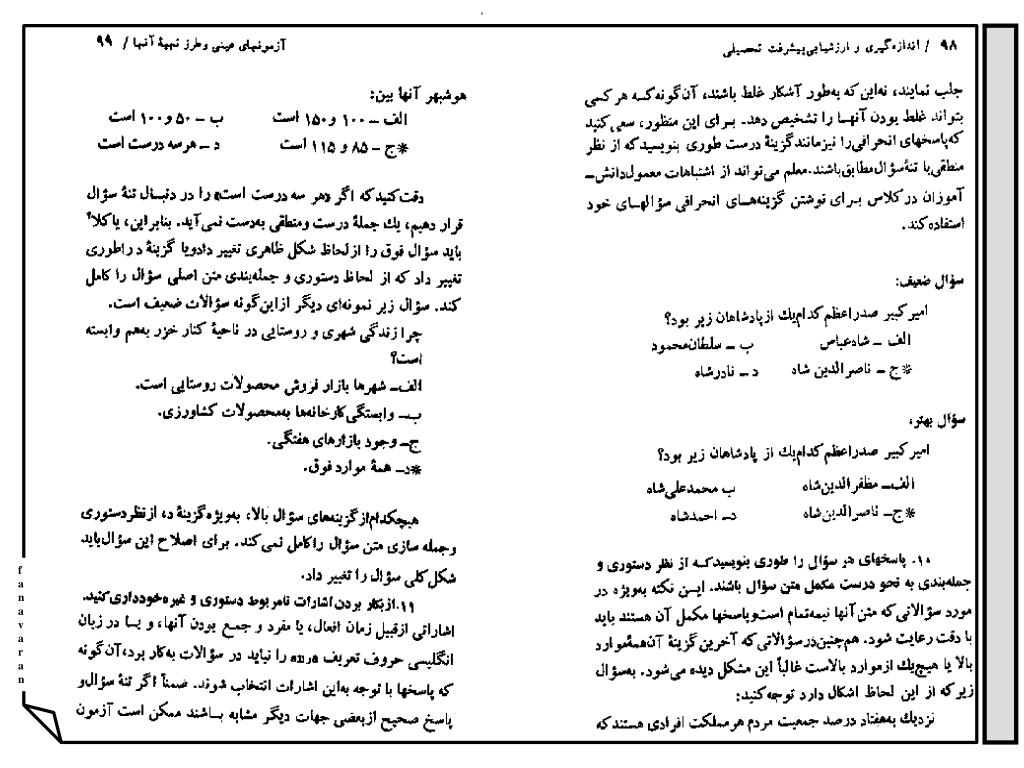 ۹۸ / اندازه‌گیری و ارزشیابی پیشرفت تحصیلی
جلب نمایند، نه‌این که به‌طور آشکار غلط باشند، آن گونه‌کـه هر کسی
بتواند غلط بودن آنهـا را تشخیص دهد. بـرای این منظور، سعی‌کنید
که‌پاسخهای انحرافی‌را نیز مانندگزینهٔ درست طوری بنویسیدکه از نظر
منطقی‌با تنهٔ‌سؤال مطابق‌باشند. معلم می‌تواند از اشتباهات معمول‌دانش‌ـ
آموزان در کلاس بـرای نوشتن گزینه‌هـای انحرافی سؤالهـای خود
استفاده کند.
سؤال ضعیف:
امیر کبیر صدراعظم کدام‌یك از پادشاهان زیر بود؟
الف ـ شاه‌عباس ب ـ سلطان‌محمود
*ج ـ ناصرالدین شاه د ـ نادرشاه
سؤال بهتر،
امیر کبیر صدراعظم کدام‌یك از پادشاهان زیر بود؟
الف‌ـ مظفرالدین‌شاه ب محمدعلی‌شاه
*ج‌ـ ناصرالدین‌شاه د‌ـ احمدشاه
۱۰. پاسخهای هر سؤال را طوری بنویسیدکـه از نظر دستوری و
جمله‌بندی به نحو درست مکمل متن سؤال باشند. ایـن نکته به‌ویژه در
مورد سؤالاتی که متن آنها نیمه‌تمام است‌وپاسخها مکمل آن هستند باید
با دقت رعایت شود. هم‌چنین‌در‌سؤالاتی‌که آخرین گزینهٔ آن‌همهٔ‌موارد
بالا یا هیچ‌یك ازموارد بالاست غالباً این مشکل دیده می‌شود. به‌سؤال
زیر که از این لحاظ اشکال دارد توجه‌کنید:
نزدیك به‌هفتاد درصد جمعیت مردم هرمملکت افرادی هستندکه
آزمونهای عینی وطرز تهیهٔ آنها / ۹۹
هوشبهر آنها بین:
الف ـ ۱۰۰ و۱۵۰ است ب ـ ۵۰ و۱۰۰ است
*ج ـ ۸۵ و ۱۱۵ است د ـ هرسه درست است
دقت‌کنیدکه اگر «هر سه درست است» را در دنبـال تنهٔ سؤال
قرار دهیم، یك جملهٔ درست ومنطقی به‌دست نمی‌آید. بنابراین، یاکلاً
باید سؤال فوق را ازلحاظ شکل ظاهری تغییر دادویا گزینهٔ د راطوری
تغییر داد که از لحاظ دستوری و جمله‌بندی متن اصلی سؤال را کامل
کند. سؤال زیر نمونه‌ای دیگر ازاین‌گونه سؤالات ضعیف است.
چرا زندگی شهری و روستایی در ناحیهٔ کنار خزر به‌هم وابسته
است؟
الف‌ـ شهرها بازار فروش محصولات روستایی است.
ب‌ـ وابستگی‌کارخانه‌ها به‌محصولات کشاورزی.
ج‌ـ وجود بازارهای هفتگی.
*د‌ـ همهٔ موارد فوق.
هیچکدام‌ازگزینه‌های سؤال بالا، به‌ویژه‌گزینهٔ د، ازنظردستوری
وجمله سازی متن سؤال راکامل نمی‌کند. برای اصلاح این سؤال‌باید
شکل‌کلی سؤال را تغییر داد.
۱۱. ازبکار بردن اشارات نامربوط دستوری و غیره خودداری‌کنید.
اشاراتی ازقبیل زمان افعال، یا مفرد و جمع بودن آنها، و یـا در زبان
انگلیسی حروف تعریف را نباید در سؤالات به‌کار برد، آن‌گونه
که پاسخها با توجه به‌این اشارات انتخاب شوند. ضمناً اگر تنهٔ سؤال‌و
پاسخ صحیح ازبعضی جهات دیگر مشابه بـاشند ممکن است آزمون
fanavaran